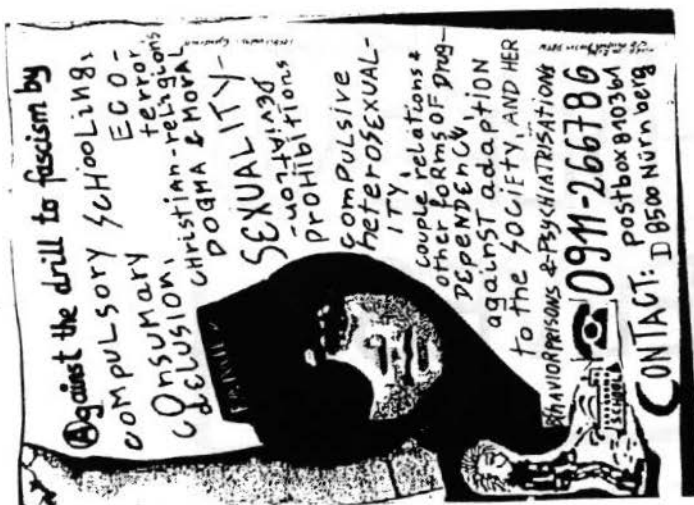 Against the drill to fascism by
COMPULSORY SCHOOLING,
CONSUMARY ECO-
DELUSION, terror
CHRISTIAN-religions
DOGMA & MORAL
SEXUALITY-
DEVIATION-
PROHIBITIONS
COMPULSIVE
heteroSEXUAL-
ITY,
couple relations &
other forms OF Drug-
DEPENDENCY,
against adaption
to the SOCIETY, AND HER
BEHAVIORPRISONS & PSYCHIATRISATIONS
0911-266786
CONTACT: postbox 810361
D 8500 Nürnberg
FAMILY
SCHOOL